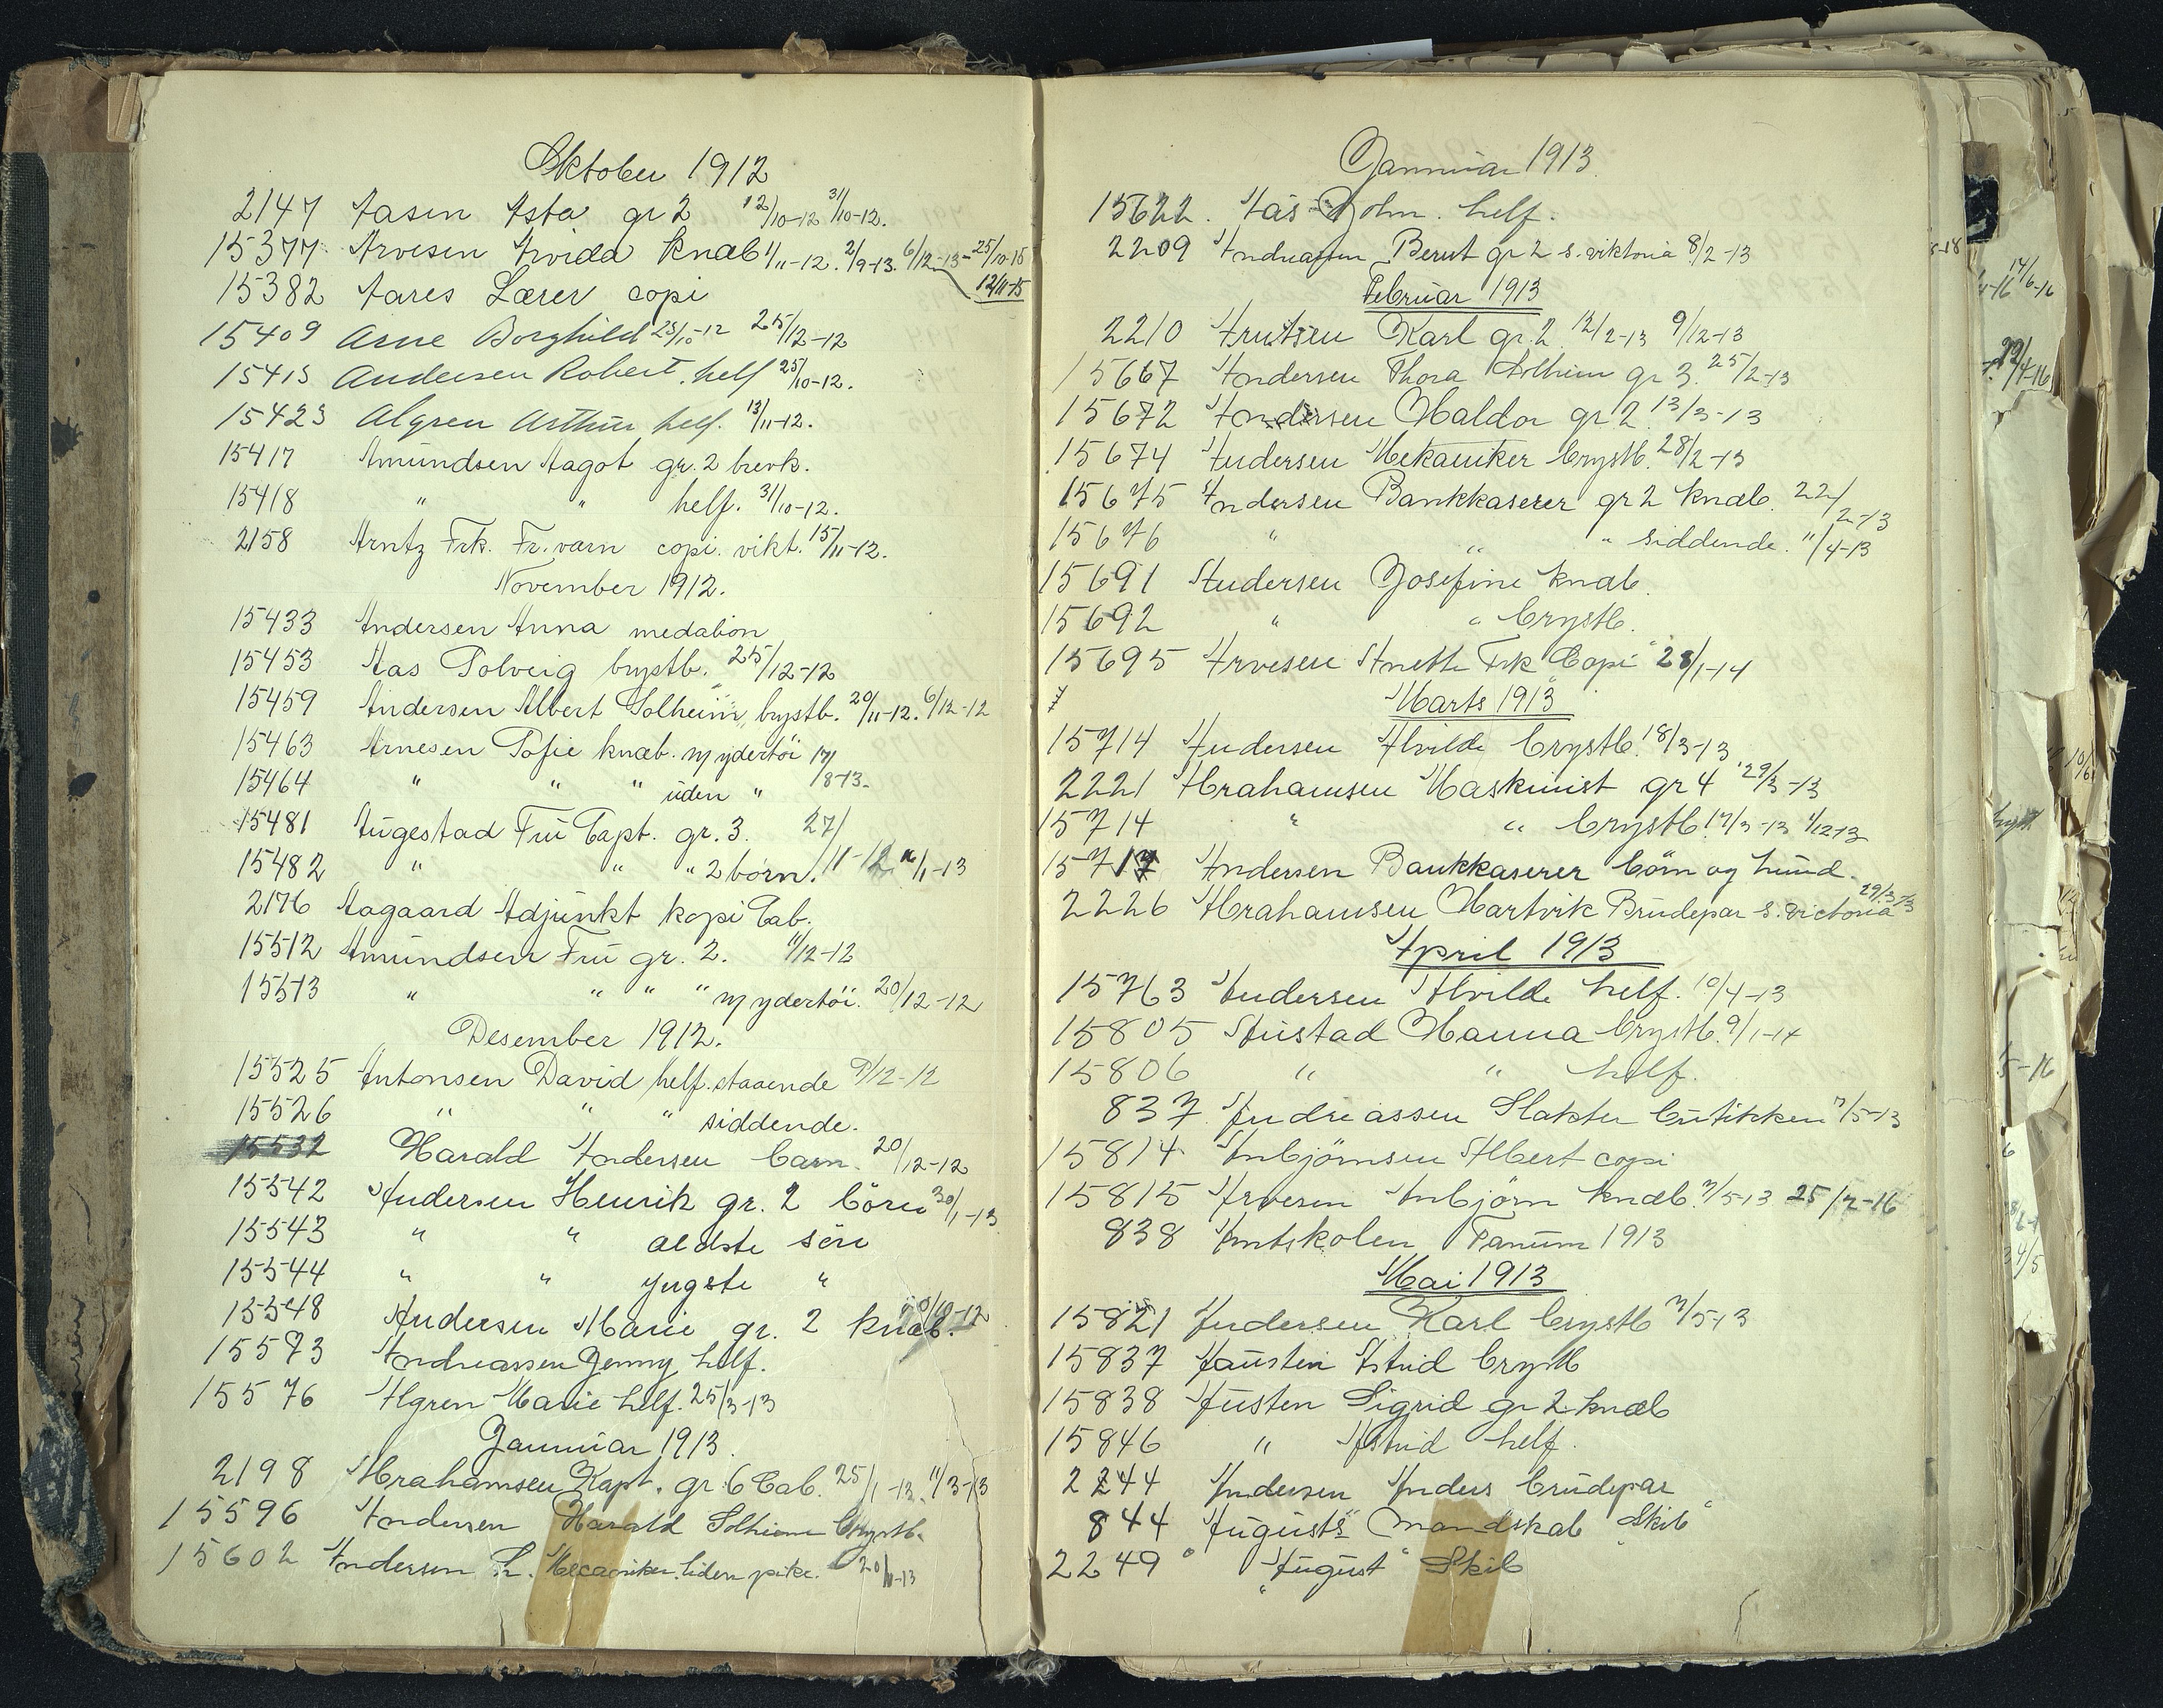 Oktober 1912
2147 Aasen Asta gr 2 12/10-12 31/10-12.
15377 Arvesen Arvida knæb 1/11-12. 2/9-13. 6/12-13 - 25/10-15
12/11-15
15382 Aares Lærer copi
15409 Asne Borghild 25/10-12 25/12-12
15415 Andersen Robert. helf 25/10-12.
15423 Algren Arthur helf. 13/11-12.
15417 Amundsen Aagot gr. 2 brevk.
15418 " " helf. 31/10-12.
2158 Arntz Frk. Fr.varn copi. vikt. 15/11-12.
November 1912.
15433 Andersen Anna medalion
15453 Aas Solveig brystb. 25/12-12
15459 Andersen Albert Solheim, brystb. 20/11-12. 6/12-12
15463 Arnesen Sofie knæb. m ydertöi 17/8-13.
15464 " " " uden "
15481 Augestad Fru Capt. gr. 3. 27/11-12
15482 " " " 2 börn. /1-13
2176 Aagaard Adjunkt kopi Cab.
15512 Amundsen Fru gr. 2. 11/12-12
15513 " " " " m ydertöi. 20/12-12
Desember 1912.
15525 Antonsen David helf. staaende 9/12-12
15526 " " " siddende.
15532 Harald Andersen barn. 20/12-12
15542 Andersen Henrik gr. 2 börn 30/1-13
15543 " " ældste sön
15544 " " yngste "
15548 Andersen Marie gr. 2 knæb.
15573 Andreassen Jenny helf.
15576 Algren Marie helf. 25/3-13
Jannuar 1913.
2198 Abrahamsen Kapt. gr. 6 Cab. 25/1-13. 11/3-13
15596 Andersen Harald Solheim brystb.
15602 Andersen L. Mecaniker. liden pike. 20/1-13
Jannuar 1913.
15622. Aas John. helf.
2209 Andreassen Berent gr 2 s. viktoria 8/2-13
Februar 1913
2210 Arntsen Karl gr. 2 12/2-13 9/12-13
15667 Andersen Thora Solheim gr 3. 25/2-13
15672 Andersen Haldor gr 2 13/3-13
15674 Andersen Mekaniker brystb. 28/2-13
15675 Andersen Bankkaserer gr 2 knæb. 22/2-13
15676 " " " siddende. 11/4-13
15691 Andersen Josefine knæb.
15692 " " brystb.
15695 Arvesen Anette Frk Copi 28/1-14
Marts 1913
15714 Andersen Alvilde brystb. 18/3-13
2221 Abrahamsen Maskinist gr 4 29/3-13
15714 " " brystb. 17/3-13 1/12-13
15717 Andersen Bankkaserer börn og hund.
2226 Abrahamsen Hartvik Brudepar s. victoria 29/3-13
April 1913
15763 Andersen Alvilde helf. 10/4-13
15805 Austad Hanna brystb. 9/1-14
15806 " " helf.
837 Andreassen Slakter butikken 7/5-13
15814 Anbjörnsen Albert copi
15815 Arvesen Anbjörn knæb. 7/5-13 25/2-16
838 Amtskolen Fanum 1913
Mai 1913
15821 Andersen Karl brystb 7/5-13
15837 Austen Astrid brystb
15838 Austen Sigrid gr 2 knæb
15846 " Astrid helf.
2244 Andersen Anders brudepar
844 "Augusts" mandskab "Skib"
2249 "August" Skib